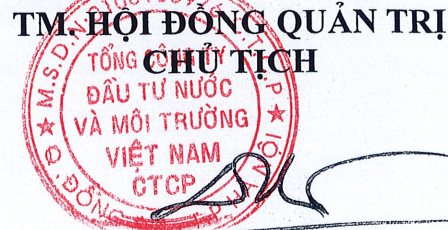 TM. HỘI ĐỒNG QUẢN TRỊ
CHỦ TỊCH
TỔNG CÔNG TY
ĐẦU TƯ NƯỚC
VÀ MÔI TRƯỜNG
VIỆT NAM
CTCP